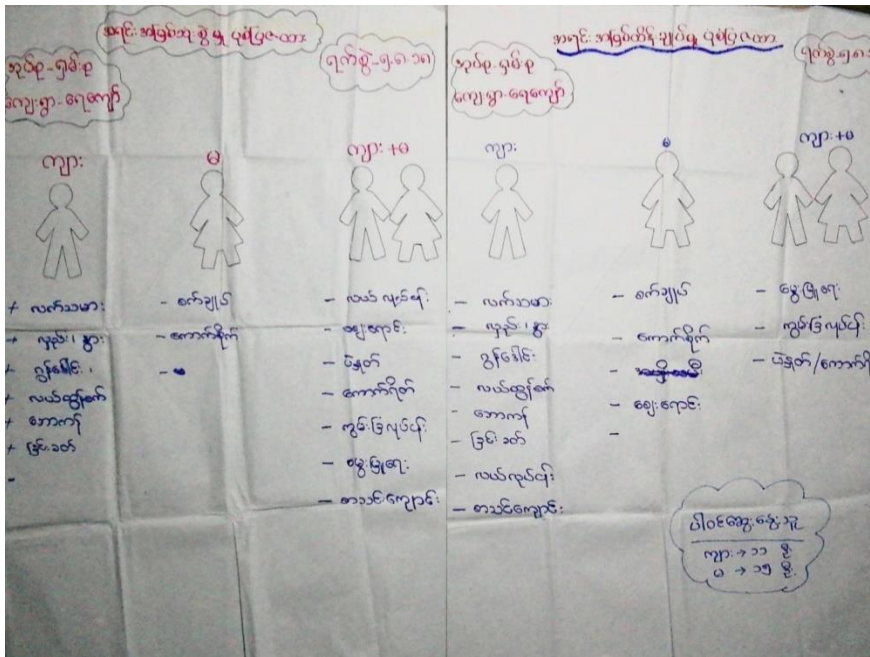 အရင်းအမြစ်သုံးစွဲမှု ပုံစံပြဇယား
အုပ်စု-ရှမ်းစု
ကျေးရွာ-ရေကျော်
ရက်စွဲ-၅.၈.၁၈
ကျား
မ
ကျား+မ
+ လက်သမား
+ လှည်း၊ နွား
+ ဂွန်ဒေါင်း၊
+ လယ်ထွန်စက်
+ ဘောကန်
+ ခြင်းခတ်
-
- စက်ချုပ်
- ကောက်စိုက်
-
- လယ်လုပ်ငန်း
- ဈေးရောင်း
- ပဲနှုတ်
- ကောက်ရိတ်
- ကွမ်းခြံလုပ်ငန်း
- မွေးမြူရေး
- စာသင်ကျောင်း
အရင်းအမြစ်ထိန်းချုပ်မှု ပုံစံပြဇယား
အုပ်စု-ရှမ်းစု
ကျေးရွာ-ရေကျော်
ရက်စွဲ-၅.၈.၁
ကျား
မ
ကျား+မ
- လက်သမား
- လှည်း၊ နွား
- ဂွန်ဒေါင်း
- လယ်ထွန်စက်
- ဘောကန်
- ခြင်းခတ်
- လယ်လုပ်ငန်း
- စာသင်ကျောင်း
- စက်ချုပ်
- ကောက်စိုက်
- ဈေးရောင်း
-
- မွေးမြူရေး
- ကွမ်းခြံလုပ်ငန်း
- ပဲနှုတ်/ကောက်ရိ
ပါဝင်ဆွေးနွေးသူ
ကျား → ၁၁ ဦး
မ → ၁၅ ဦး